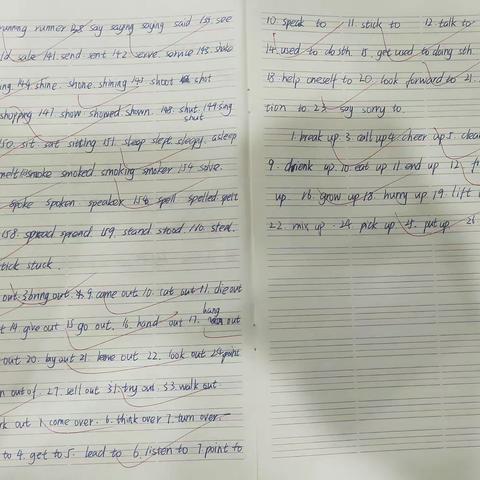 running runner 138 say saying saying said 139. see
sale 141. send sent 142 serve. service 143. shake
144. shine. shone. shining 145 shoot shot
shopping 147 show showed shown. 148. shut. 149 sing
shut
150. sit sat sitting 151. sleep slept sleepy. asleep
smoke smoked smoking smoker 154 solve.
spoke spoken speaker 156 spell spelled spelt
158. spread spread 159. stand stood. 160. steal.
stick stuck.
out 3 bring out. 9. come out 10. eat out 11. die out
14. give out 15 go out. 16. hand out 17. hang out
out 20. lay out 21. leave out 22. look out 24 point
out of. 27. sell out 31. try out. 33. walk out
out 1. come over. 6. think over 7. turn over.
to 4. get to 5. lead to 6. listen to 7. point to
10. speak to 11. stick to 12 talk to
14. used to do sth 15. get used to doing sth
18 help oneself to 20. look forward to 21.
tion to 23. say sorry to.
1. break up. 3 call up 4 cheer up 5. clean
9. drink up. 10. eat up 11. end up 12.
up. 16. grow up 18. hurry up. 19. lift
22. mix up. 24. pick up. 25. put up. 26